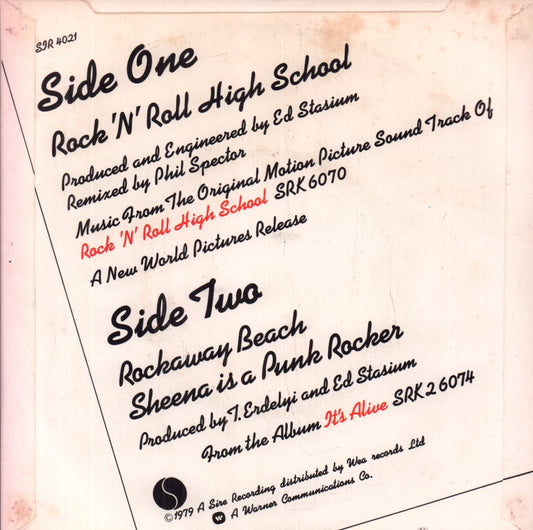 SIR 4021
Side One
Rock 'N' Roll High School
Produced and Engineered by Ed Stasium
Remixed by Phil Spector
Music From The Original Motion Picture Sound Track Of
Rock 'N' Roll High School SRK 6070
A New World Pictures Release
Side Two
Rockaway Beach
Sheena is a Punk Rocker
Produced by T. Erdelyi and Ed Stasium
From the Album It's Alive SRK 2 6074
©1979 A Sire Recording distributed by Wea records Ltd
A Warner Communications Co.